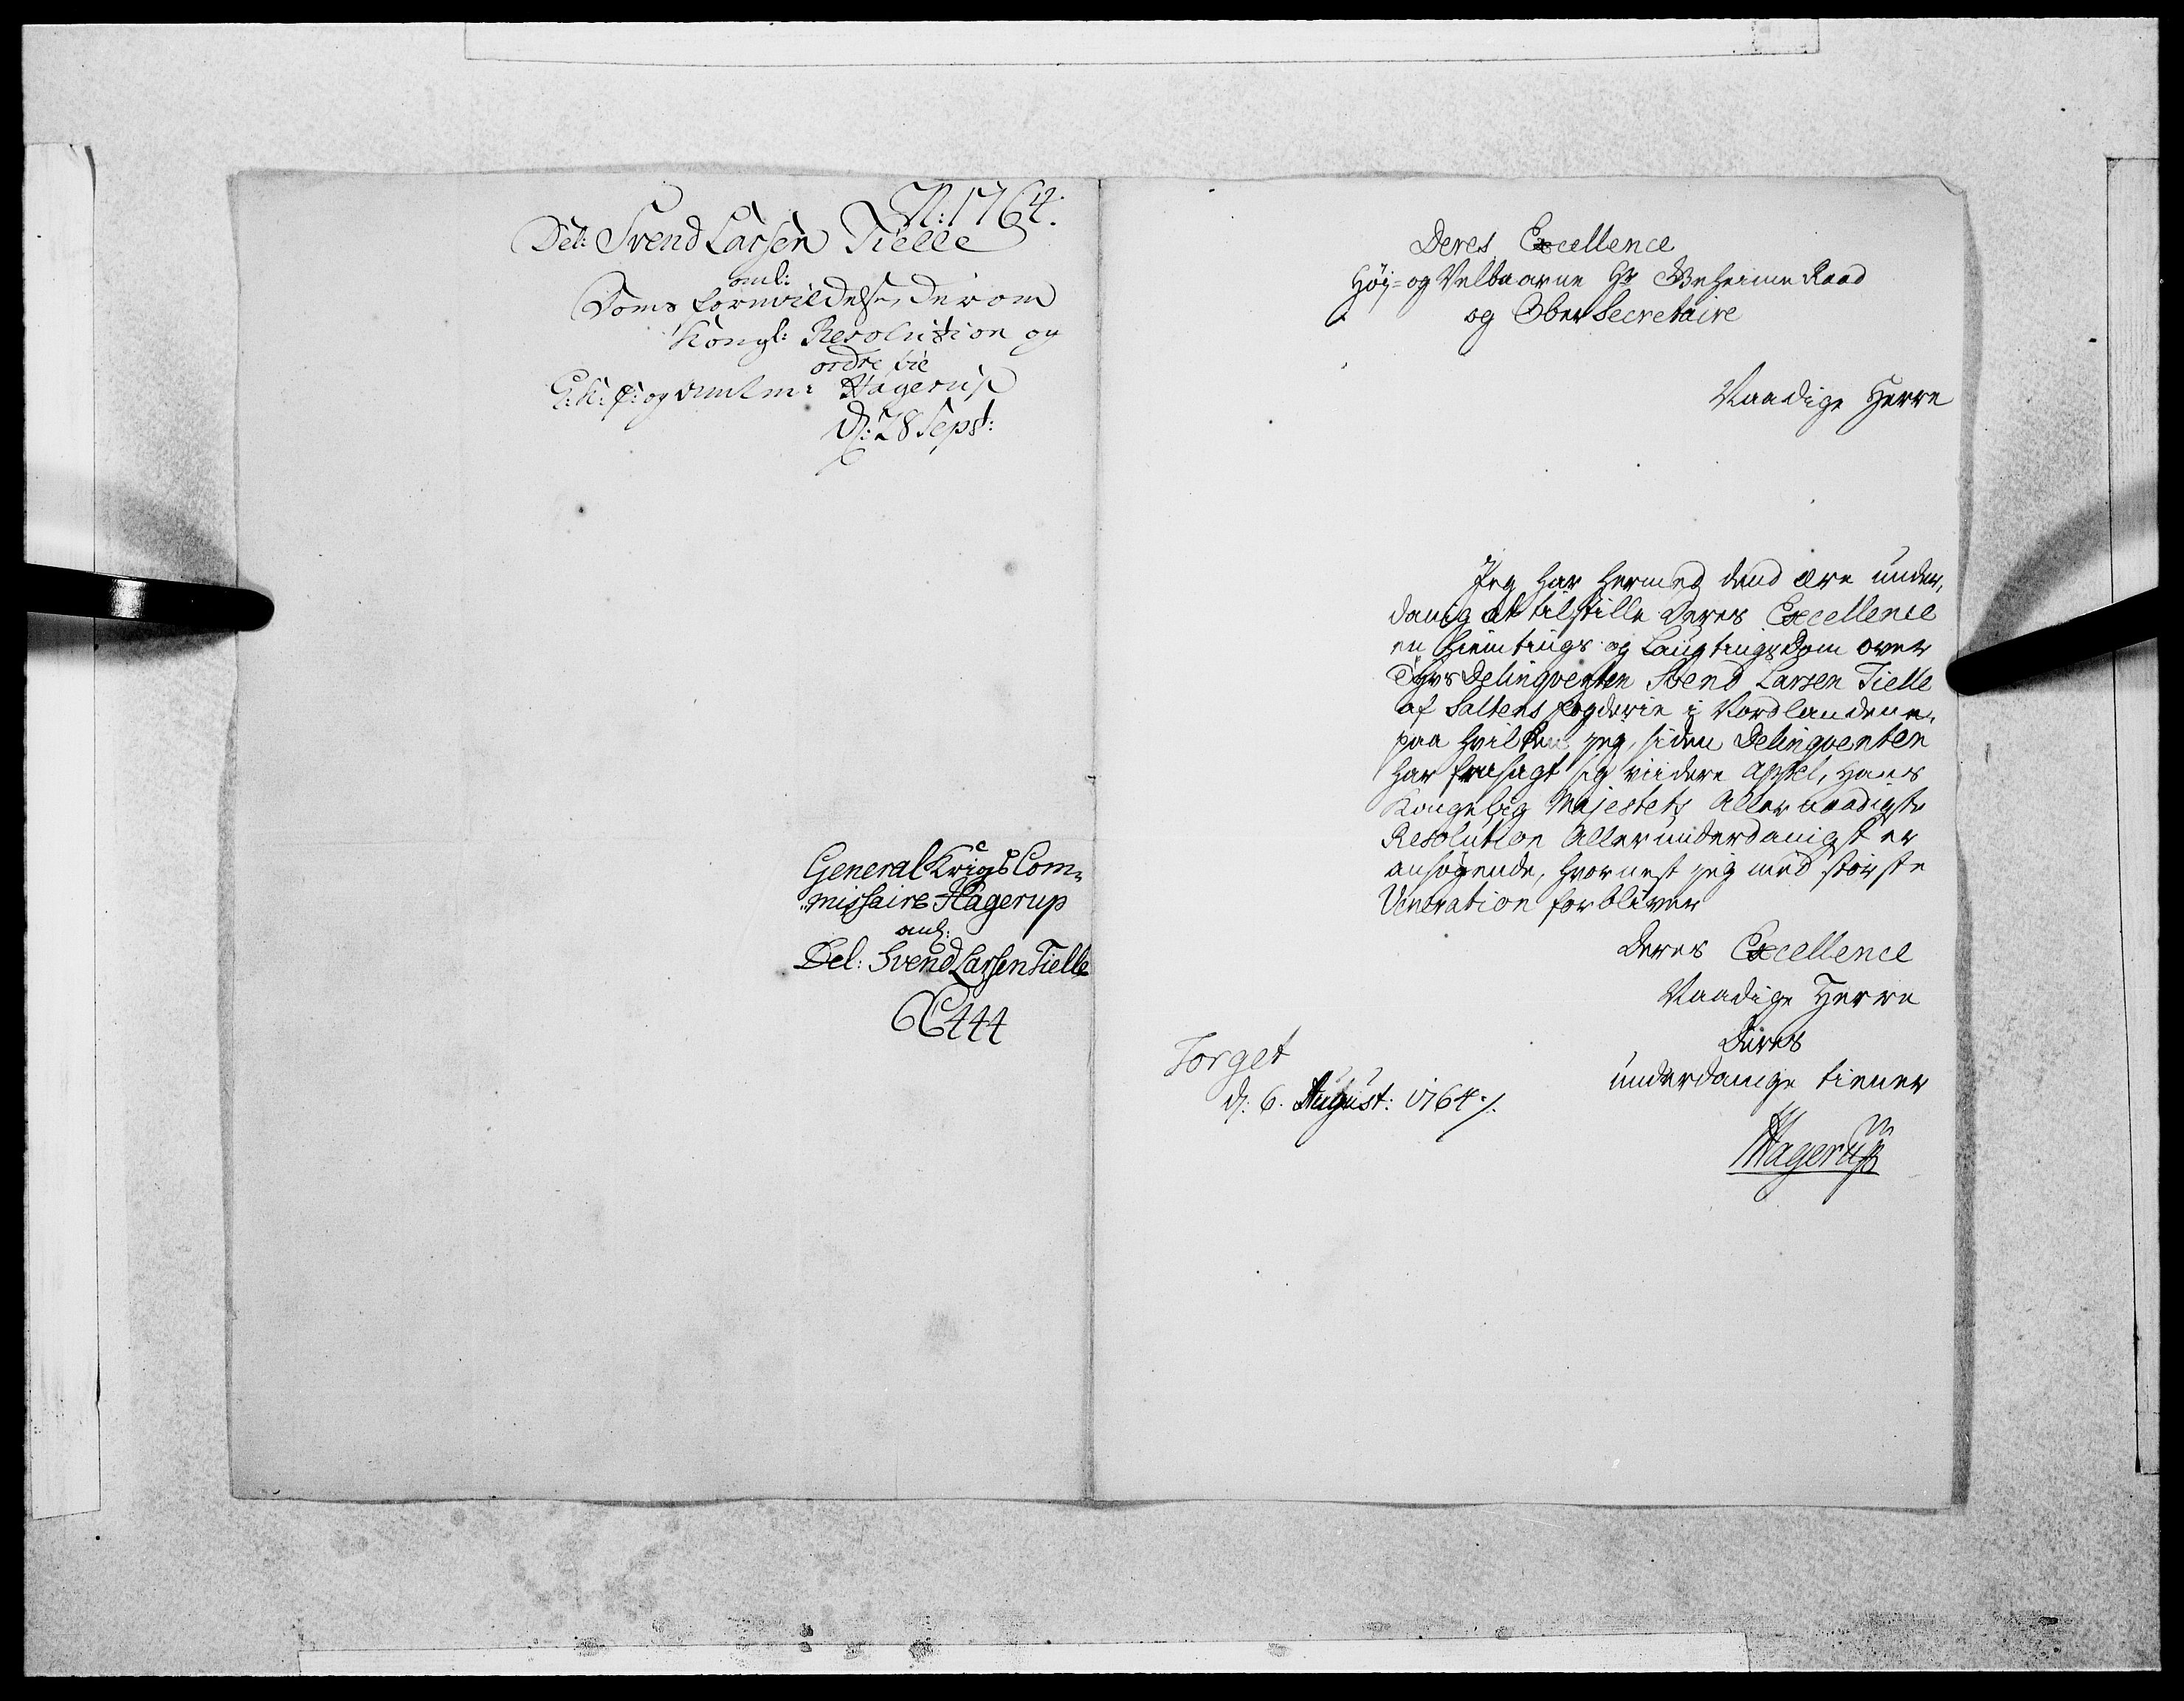 N: 1764.
Del: Svend Larsen Tielle
anl:
Doms formildelse, derom
Kongl: Resolution og
ordre til
G: K: C: og Amtm: Hagerup
d: 28 Sept:
General Krigs Com„
„missaire Hagerup
anl:
Del: Svend Larsen Tielle
444
Deres Excellence
Høj- og Velbaarne Hr Geheime Raad
og Ober Secretaire
Naadige Herre
Jeg har hermed dend ære under„
danig at tilstille Deres Excellence
en Hiemtings og Laugtings Dom over
Tyvs Delinqventen Svend Larsen Tielle
af Saltens fogderie i Nordlandene,
paa hvilken jeg, siden Delinqventen
har frasagt sig viidere Appel, Hans
Kongelig Majestets Allernaadigste
Resolution Allerunderdanigst er
ansøgende, hvornest jeg med største
Veneration forbliver
Deres Excellence
Naadige Herre
Deres
underdanige tiener
Hagerup
Torget
d: 6. August: 1764 ⁒